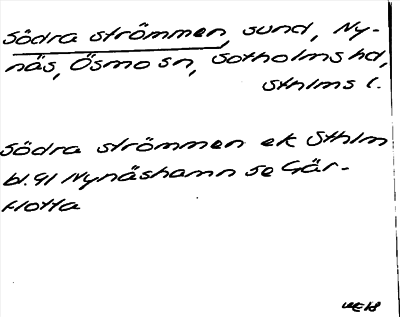 Södra strömmen, sund, Ny-
näs, Ösmo sn, Sotholms hd,
Sthlms l.
Södra strömmen ek Sthlm
bl. 91 Nynäshamn se Går-
flotta